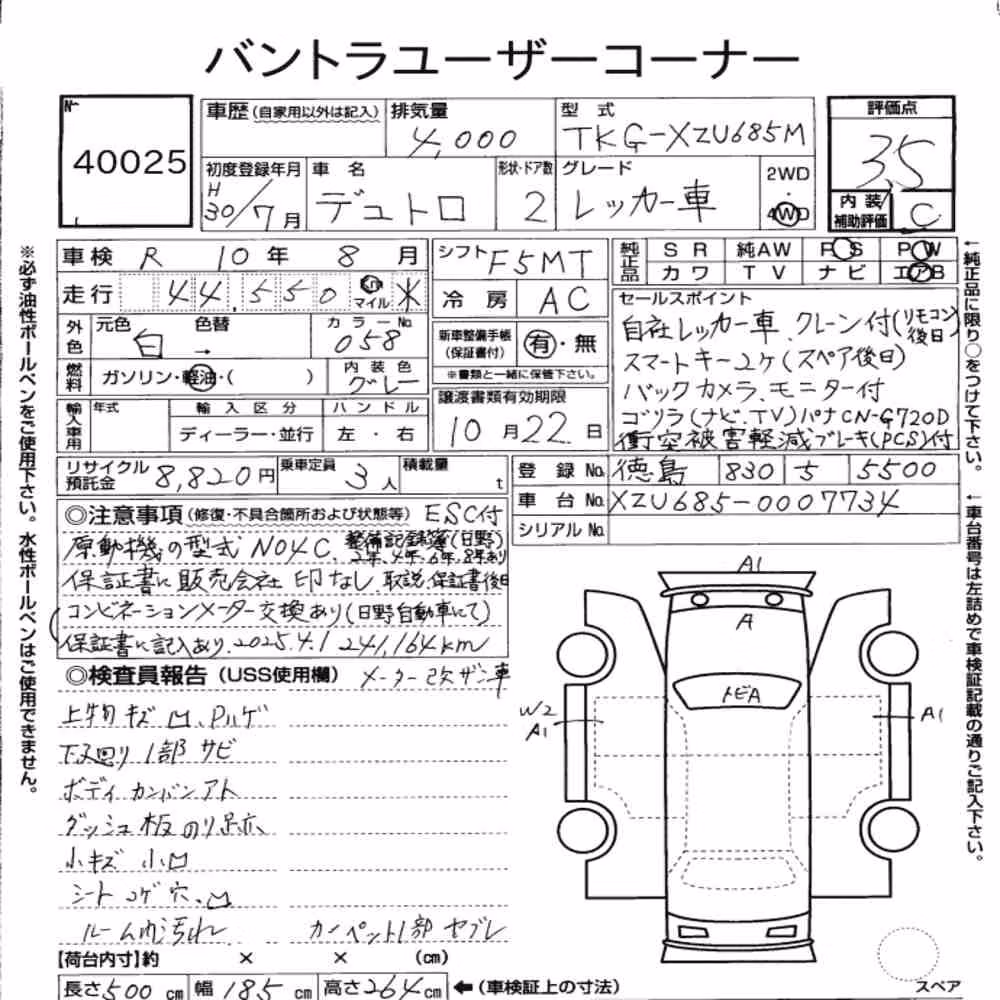 バントラユーザーコーナー
No. 40025
車歴(自家用以外は記入) 排気量 4,000 型式 TKG-XZU685M 評価点 3.5
初度登録年月 H30/7月 車名 デュトロ 形状・ドア数 2 グレード レッカー車 2WD・4WD 内装補助評価 C
車検 R 10年 8月 シフト F5MT 純正品 SR 純AW PS PW
カワ TV ナビ エアB
走行 44,550 km マイル ※ 冷房 AC
セールスポイント
自社レッカー車、クレーン付(リモコン後日)
スマートキー2ケ(スペア後日)
バックカメラ、モニター付
ゴリラ(ナビ、TV)パナCN-G720D
衝突被害軽減ブレーキ(PCS)付
外色 元色 白 色替 → カラーNo. 058 新車整備手帳(保証書付) 有・無
※書類と一緒に保管下さい。
燃料 ガソリン・軽油・( ) 内装色 グレー
譲渡書類有効期限 10月22日
輸入車用 年式 輸入区分 ディーラー・並行 ハンドル 左・右
リサイクル預託金 8,820円 乗車定員 3人 積載量 t
登録No. 徳島 830 う 5500
車台No. XZU685-0007734
シリアルNo.
◎注意事項(修復・不具合箇所および状態等) ESC付
原動機の型式 N04C、整備記録簿(日野)2年、4年、6年、8年あり
保証書に販売会社印なし、取説、保証書後日
コンビネーションメーター交換あり(日野自動車にて)
保証書に記入あり、2025.4.1 241,164km
◎検査員報告(USS使用欄) メーター改ザン車
上物キズ凹、Pハゲ
下廻り1部サビ
ボディカンバンアト
ダッシュ板のり跡
小キズ小凹
シートコゲ穴、凹
ルーム内汚れ カーペット1部ヤブレ
【荷台内寸】約 × × (cm)
長さ500cm 幅185cm 高さ264cm ←(車検証上の寸法)
A1
A
トビA
W2
A1
A1
スペア
※必ず油性ボールペンをご使用下さい。水性ボールペンはご使用できません。
←純正品に限り○をつけて下さい。
←車台番号は左詰めで車検証記載の通りご記入下さい。